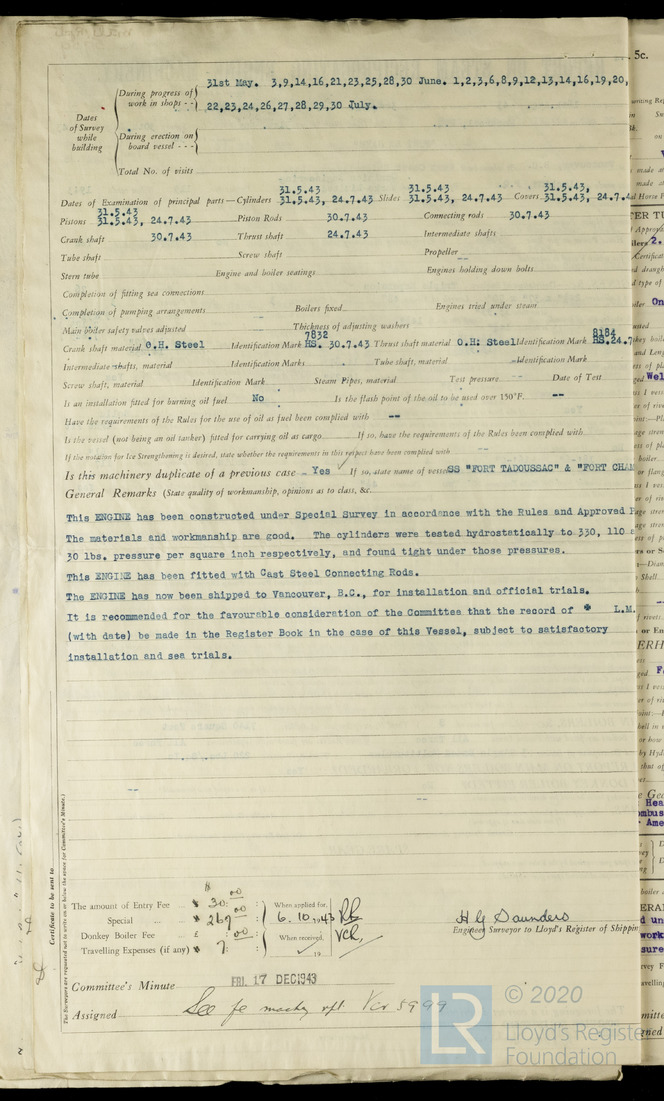 5c.
31st May. 3,9,14,16,21,23,25,28,30 June. 1,2,3,6,8,9,12,13,14,16,19,20,
During progress of work in shops - -
22,23,24,26,27,28,29,30 July.
Dates of Survey while building
During erection on board vessel - - -
Total No. of visits
31.5.43 31.5.43 31.5.43,
Dates of Examination of principal parts—Cylinders 31.5.43, 24.7.43 Slides 31.5.43, 24.7.43 Covers 31.5.43, 24.7.4
31.5.43
Pistons 31.5.43, 24.7.43 Piston Rods 30.7.43 Connecting rods 30.7.43
Crank shaft 30.7.43 Thrust shaft 24.7.43 Intermediate shafts
Tube shaft Screw shaft Propeller
Stern tube Engine and boiler seatings Engines holding down bolts
Completion of fitting sea connections
Completion of pumping arrangements Boilers fixed Engines tried under steam
Main boiler safety valves adjusted Thickness of adjusting washers
7832 8184
Crank shaft material O.H. Steel Identification Mark HS. 30.7.43 Thrust shaft material O.H. Steel Identification Mark HS.24.7
Intermediate shafts, material Identification Marks Tube shaft, material Identification Mark
Screw shaft, material Identification Mark Steam Pipes, material Test pressure Date of Test
Is an installation fitted for burning oil fuel No Is the flash point of the oil to be used over 150°F. --
Have the requirements of the Rules for the use of oil as fuel been complied with --
Is the vessel (not being an oil tanker) fitted for carrying oil as cargo If so, have the requirements of the Rules been complied with
If the notation for Ice Strengthening is desired, state whether the requirements in this respect have been complied with
Is this machinery duplicate of a previous case Yes If so, state name of vessel SS "FORT TADOUSSAC" & "FORT CHAM
General Remarks (State quality of workmanship, opinions as to class, &c.
This ENGINE has been constructed under Special Survey in accordance with the Rules and Approved P
The materials and workmanship are good. The cylinders were tested hydrostatically to 330, 110 a
30 lbs. pressure per square inch respectively, and found tight under those pressures.
This ENGINE has been fitted with Cast Steel Connecting Rods.
The ENGINE has now been shipped to Vancouver, B.C., for installation and official trials.
It is recommended for the favourable consideration of the Committee that the record of * L.M.
(with date) be made in the Register Book in the case of this Vessel, subject to satisfactory
installation and sea trials.
Certificate to be sent to
(The Surveyors are requested not to write on or below the space for Committee's Minute.)
The amount of Entry Fee $ 30:00 When applied for,
Special $ 267:00 6.10.1943
Donkey Boiler Fee £ :00 When received,
Travelling Expenses (if any) $ 7: 19
H G Saunders
Engineer Surveyor to Lloyd's Register of Shippin
Committee's Minute FRI. 17 DEC 1943
Assigned See fe machy rpt. Vcr 5999
© 2020
LR
Lloyd's Register
Foundation